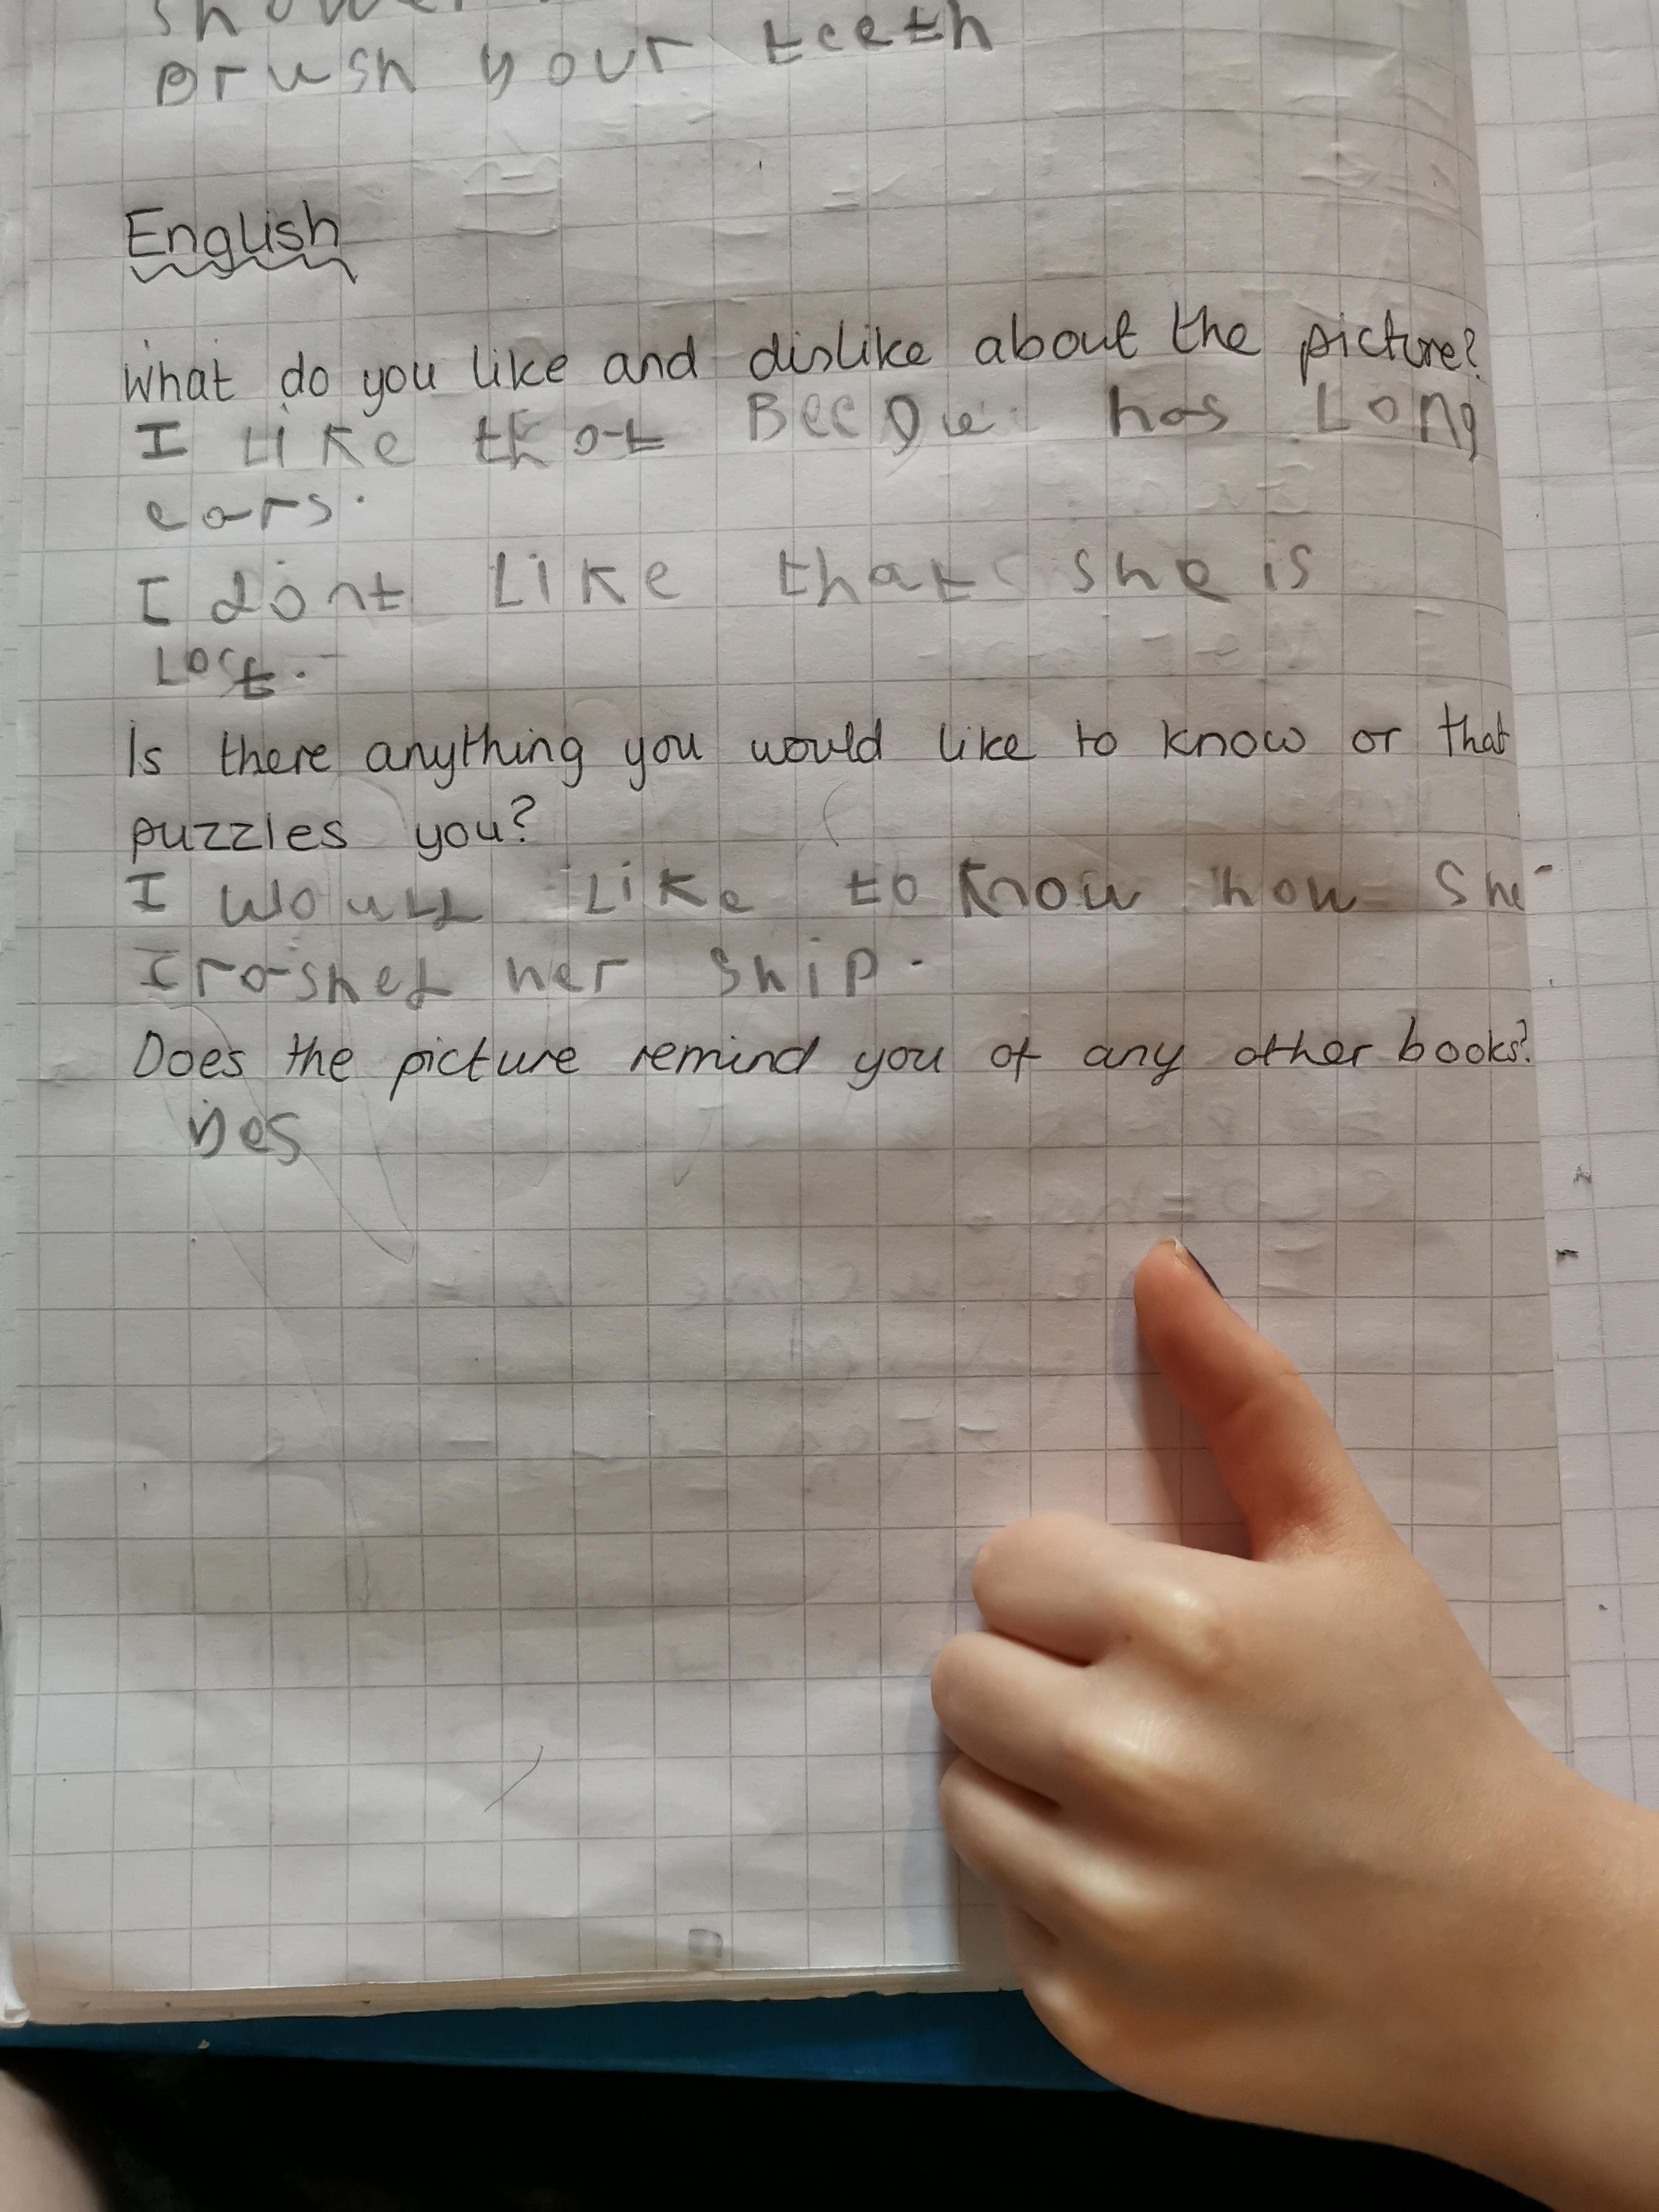 shower
Brush your teeth
English
What do you like and dislike about the picture?
I Like that Beegu has Long
ears.
I dont Like that she is
Lost.
Is there anything you would like to know or that
puzzles you?
I would Like to know how She
crashed her Ship.
Does the picture remind you of any other books?
yes